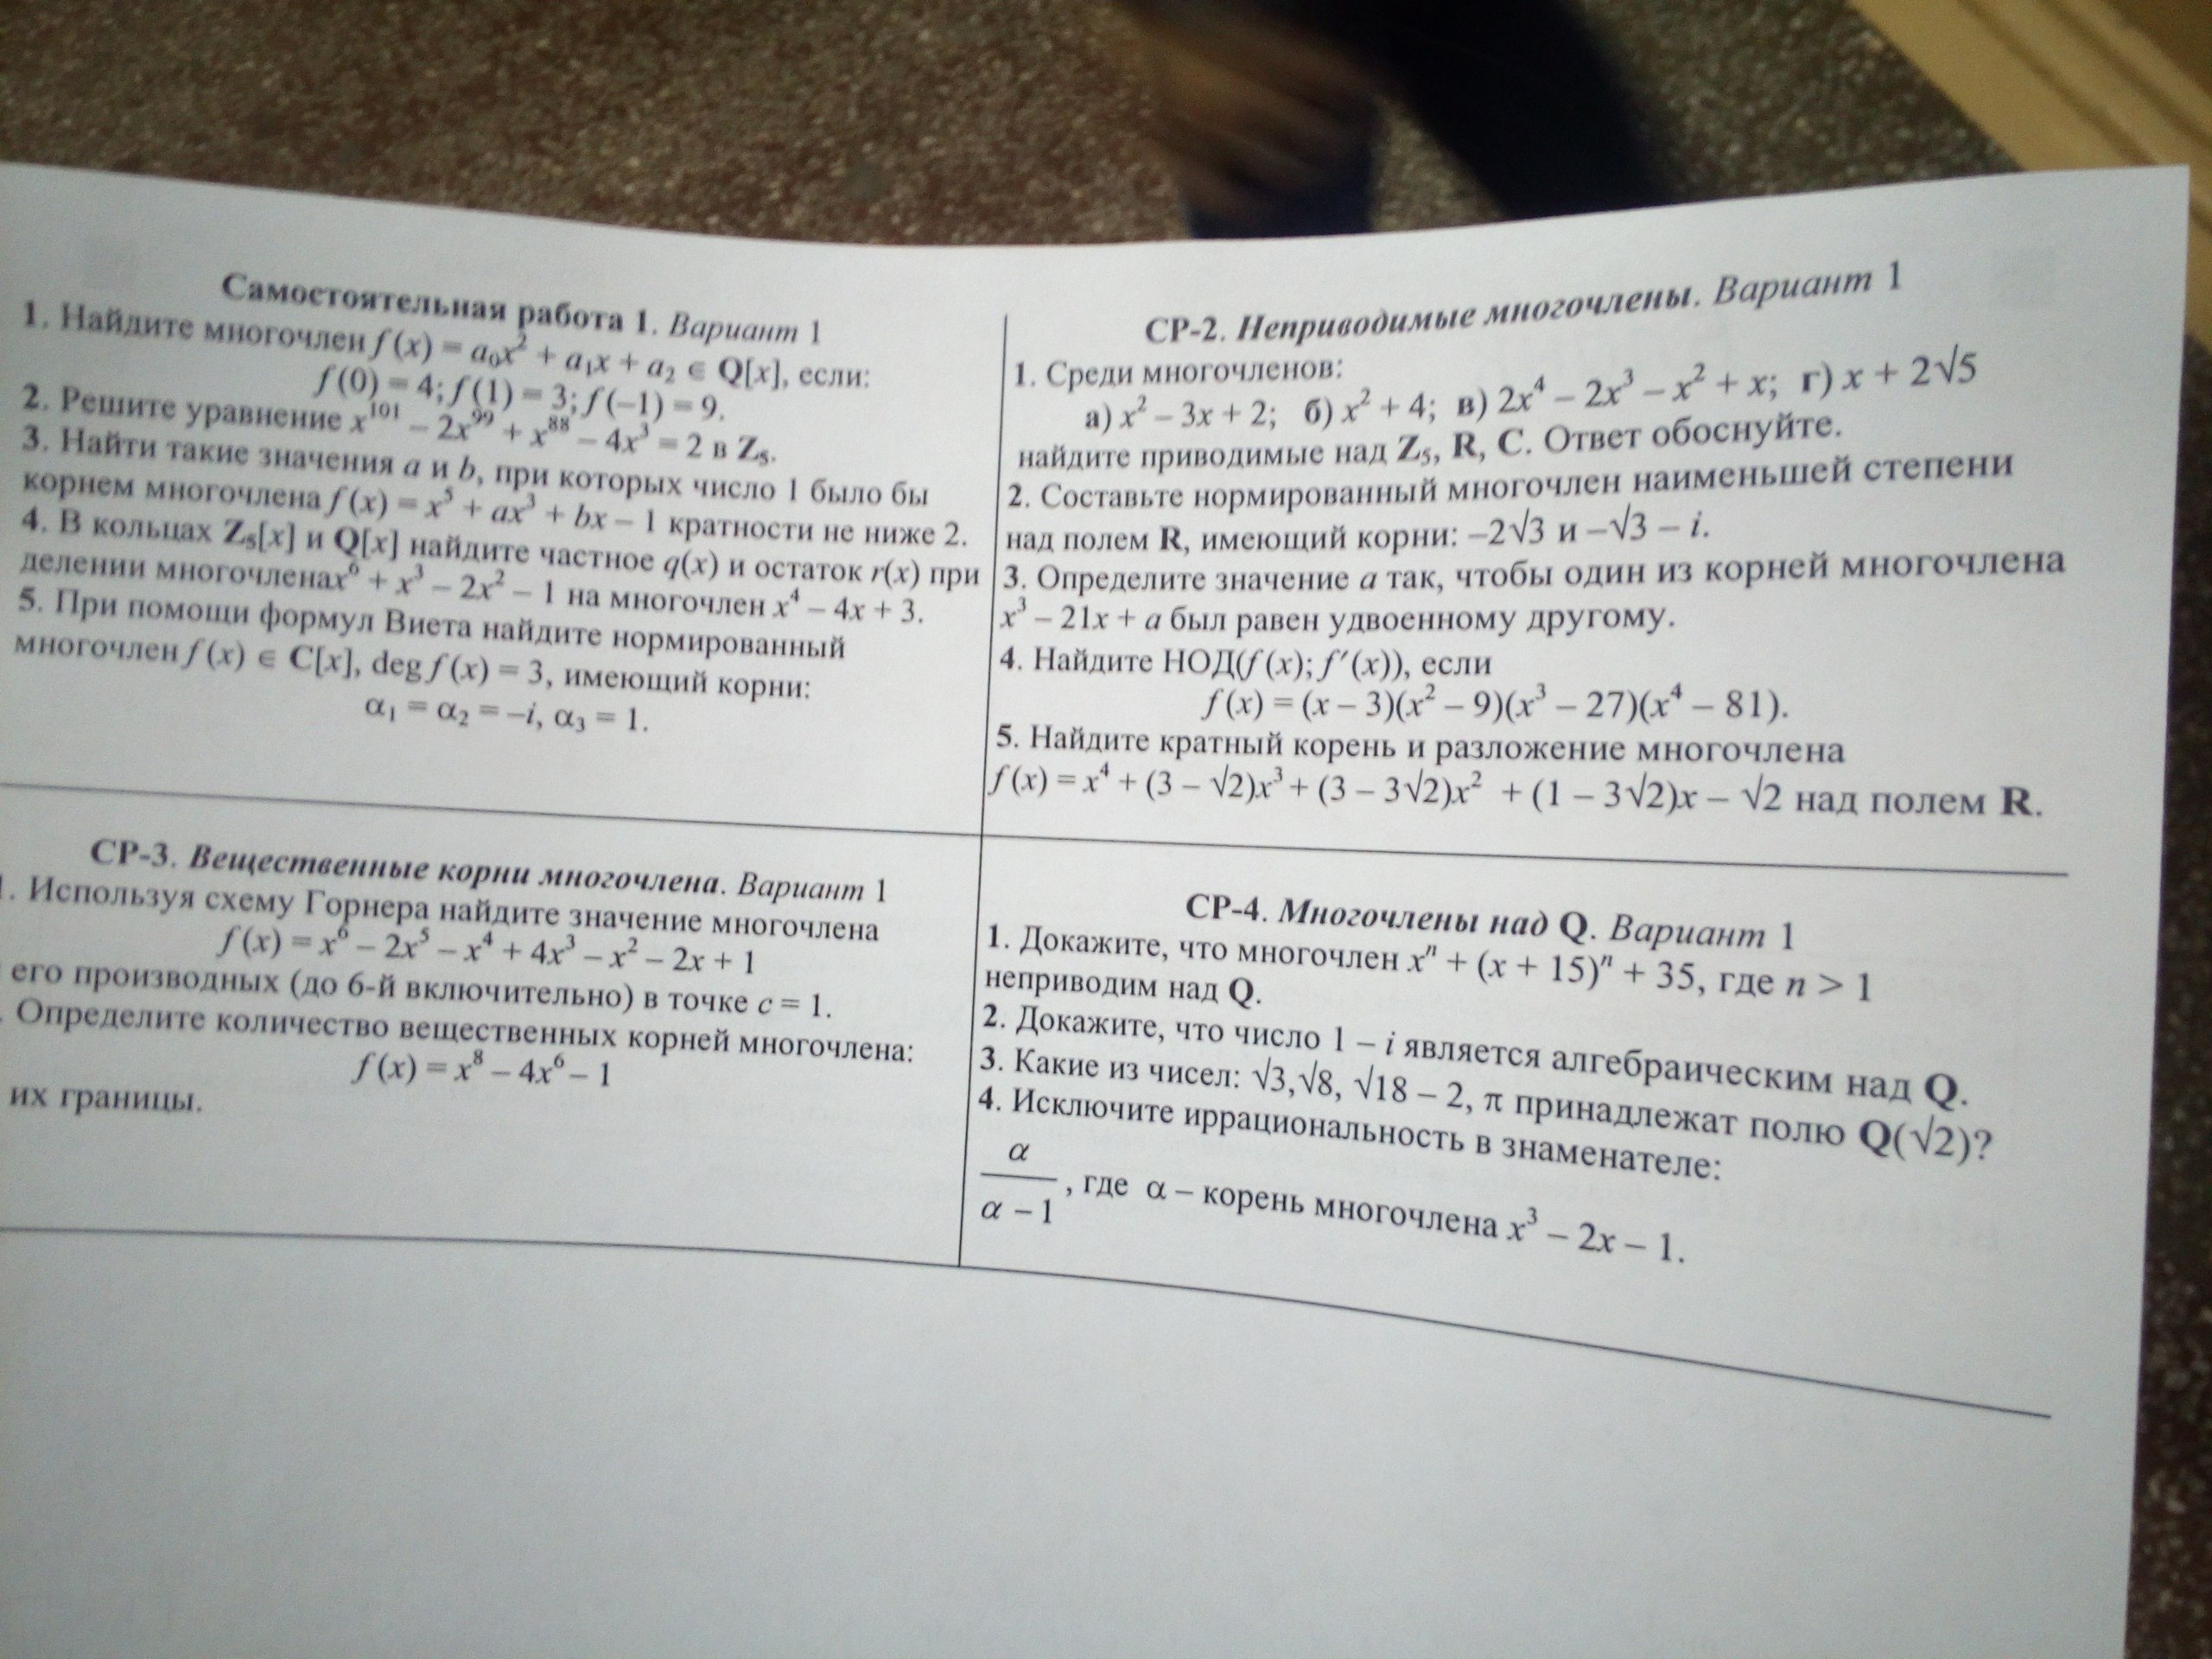 Самостоятельная работа 1. Вариант 1
1. Найдите многочлен f (x) = a₀x² + a₁x + a₂ ∈ Q[x], если:
f (0) = 4; f (1) = 3; f (−1) = 9.
2. Решите уравнение x¹⁰¹ − 2x⁹⁹ + x⁸⁸ − 4x³ = 2 в Z₅.
3. Найти такие значения a и b, при которых число 1 было бы
корнем многочлена f (x) = x⁵ + ax³ + bx − 1 кратности не ниже 2.
4. В кольцах Z₅[x] и Q[x] найдите частное q(x) и остаток r(x) при
делении многочленаx⁶ + x³ − 2x² − 1 на многочлен x⁴ − 4x + 3.
5. При помощи формул Виета найдите нормированный
многочлен f (x) ∈ C[x], deg f (x) = 3, имеющий корни:
α₁ = α₂ = −i, α₃ = 1.
СР-2. Неприводимые многочлены. Вариант 1
1. Среди многочленов:
а) x² − 3x + 2; б) x² + 4; в) 2x⁴ − 2x³ − x² + x; г) x + 2√5
найдите приводимые над Z₅, R, C. Ответ обоснуйте.
2. Составьте нормированный многочлен наименьшей степени
над полем R, имеющий корни: −2√3 и −√3 − i.
3. Определите значение a так, чтобы один из корней многочлена
x³ − 21x + a был равен удвоенному другому.
4. Найдите НОД(f (x); f ′(x)), если
f (x) = (x − 3)(x² − 9)(x³ − 27)(x⁴ − 81).
5. Найдите кратный корень и разложение многочлена
f (x) = x⁴ + (3 − √2)x³ + (3 − 3√2)x² + (1 − 3√2)x − √2 над полем R.
СР-3. Вещественные корни многочлена. Вариант 1
1. Используя схему Горнера найдите значение многочлена
f (x) = x⁶ − 2x⁵ − x⁴ + 4x³ − x² − 2x + 1
его производных (до 6-й включительно) в точке c = 1.
. Определите количество вещественных корней многочлена:
f (x) = x⁸ − 4x⁶ − 1
их границы.
СР-4. Многочлены над Q. Вариант 1
1. Докажите, что многочлен xⁿ + (x + 15)ⁿ + 35, где n > 1
неприводим над Q.
2. Докажите, что число 1 − i является алгебраическим над Q.
3. Какие из чисел: √3,√8, √18 − 2, π принадлежат полю Q(√2)?
4. Исключите иррациональность в знаменателе:
α / α − 1 , где α − корень многочлена x³ − 2x − 1.